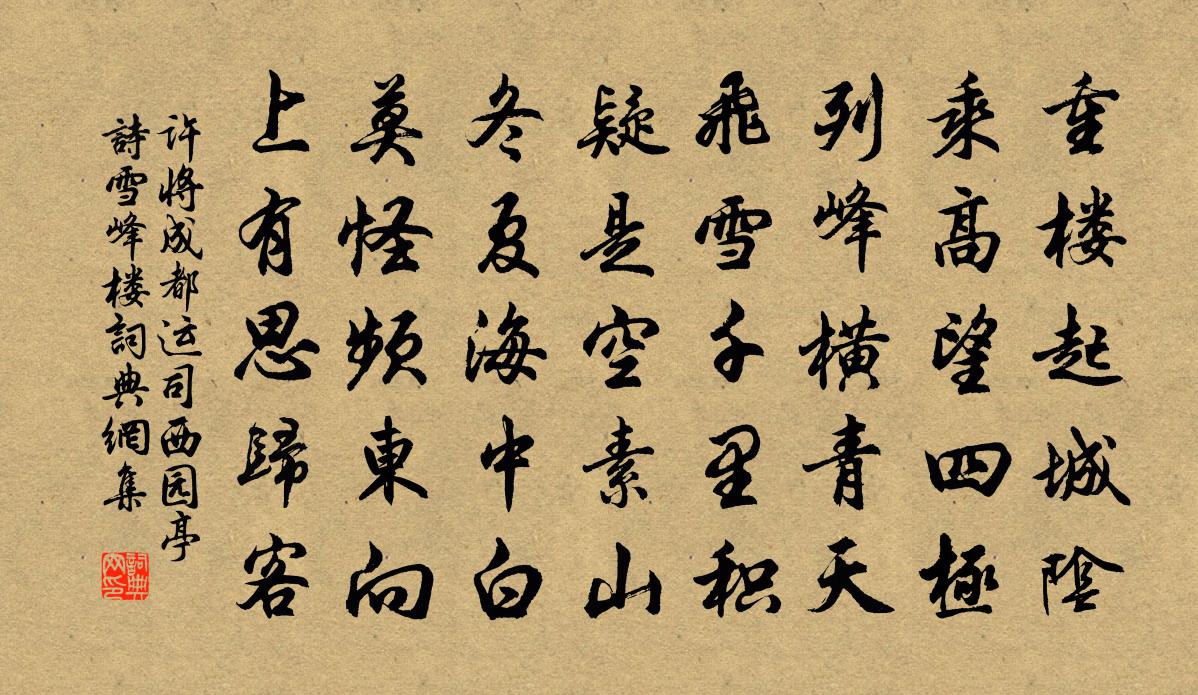 重楼起城陰
乘高望四極
列峰橫青天
飛雪千里积
疑是空素山
冬夏海中白
莫怪頻東向
上有思歸客
许将成都运司西园亭
詩雪峰楼詞典網集
詞典网印